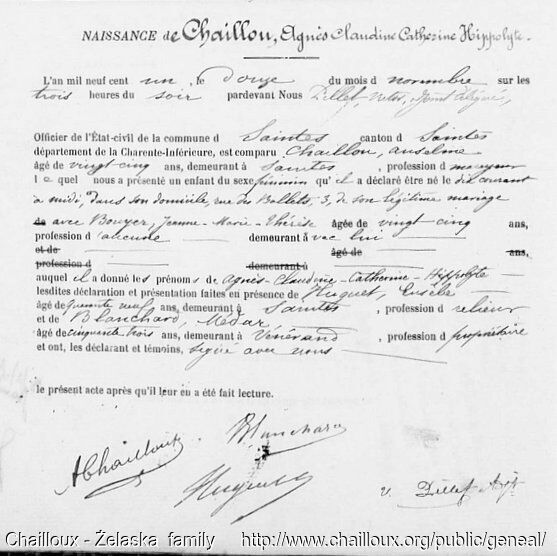 NAISSANCE de Chaillou, Agnès Claudine Catherine Hippolyte.
L'an mil neuf cent un, le douze du mois d novembre sur les
trois heures du soir pardevant Nous Dillet
Officier de l'État-civil de la commune d Saintes canton d Saintes
département de la Charente-Inférieure, est comparu Chaillou, Anselme
âgé de vingt cinq ans, demeurant à Saintes, profession d
le quel nous a présenté un enfant du sexe féminin qu'il a déclaré être né le dix courant
à midi, dans son domicile, rue des Ballets, 3, de son légitime mariage
de avec Bouyer, Jeanne-Marie-Thérèse âgée de vingt cinq ans,
profession d aucune demeurant à vec lui
et de âgé de ans,
profession d demeurant à
auquel il a donné les prénoms de Agnès-Claudine-Catherine-Hippolyte
lesdites déclaration et présentation faites en présence de Huguet, Eusèbe
âgé de quarante neuf ans, demeurant à Saintes, profession d relieur
et de Blanchard, Médar
âgé de cinquante-trois ans, demeurant à Vénérand, profession d propriétaire
et ont, les déclarant et témoins, signé avec nous
le présent acte après qu'il leur en a été fait lecture.
AChailloux Blanchard
Huguet V. Dillet Ajt
Chailloux - Żelaska family http://www.chailloux.org/public/geneal/